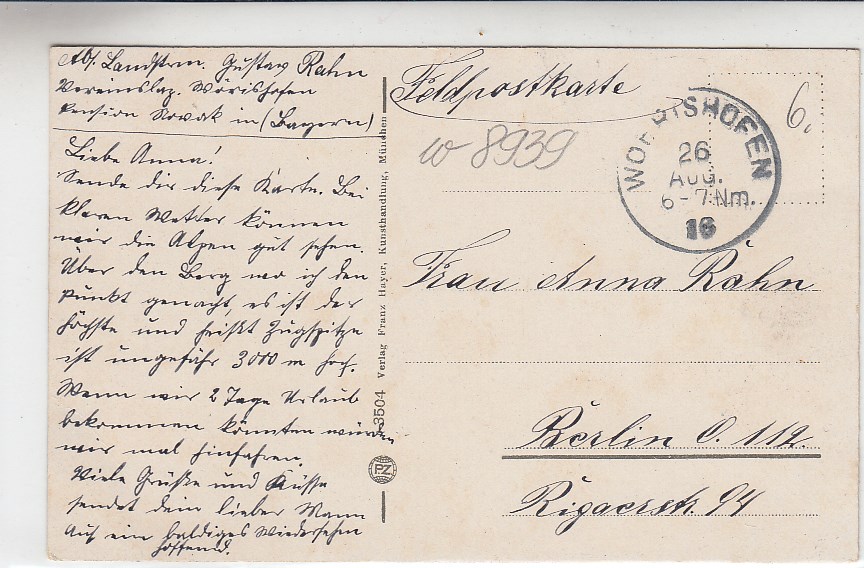 Abs. Landstrm. Gustav Rahn
Vereinslaz. Wörishofen
Pension Nowak in (Bayern)
Liebe Anna!
Sende dir diese Karte. Bei
klaren Wetter können
wir die Alpen gut sehen.
Über den Berg wo ich den
Punkt gemacht, es ist der
höchste und heißt Zugspitze
ist ungefähr 3000 m hoch.
Wenn wir 2 Tage Urlaub
bekommen könnten würden
wir mal hinfahren.
Viele Grüße und Küsse
sendet dein lieber Mann
Auf ein baldiges Wiedersehen
hoffend.
3504 Verlag Franz Hayer, Kunsthandlung, München
PZ
Feldpostkarte
W 8939
WOERISHOFEN
26
AUG.
6-7 Nm.
16
6.
Frau Anna Rahn
Berlin O. 112.
Rigaerstr. 94